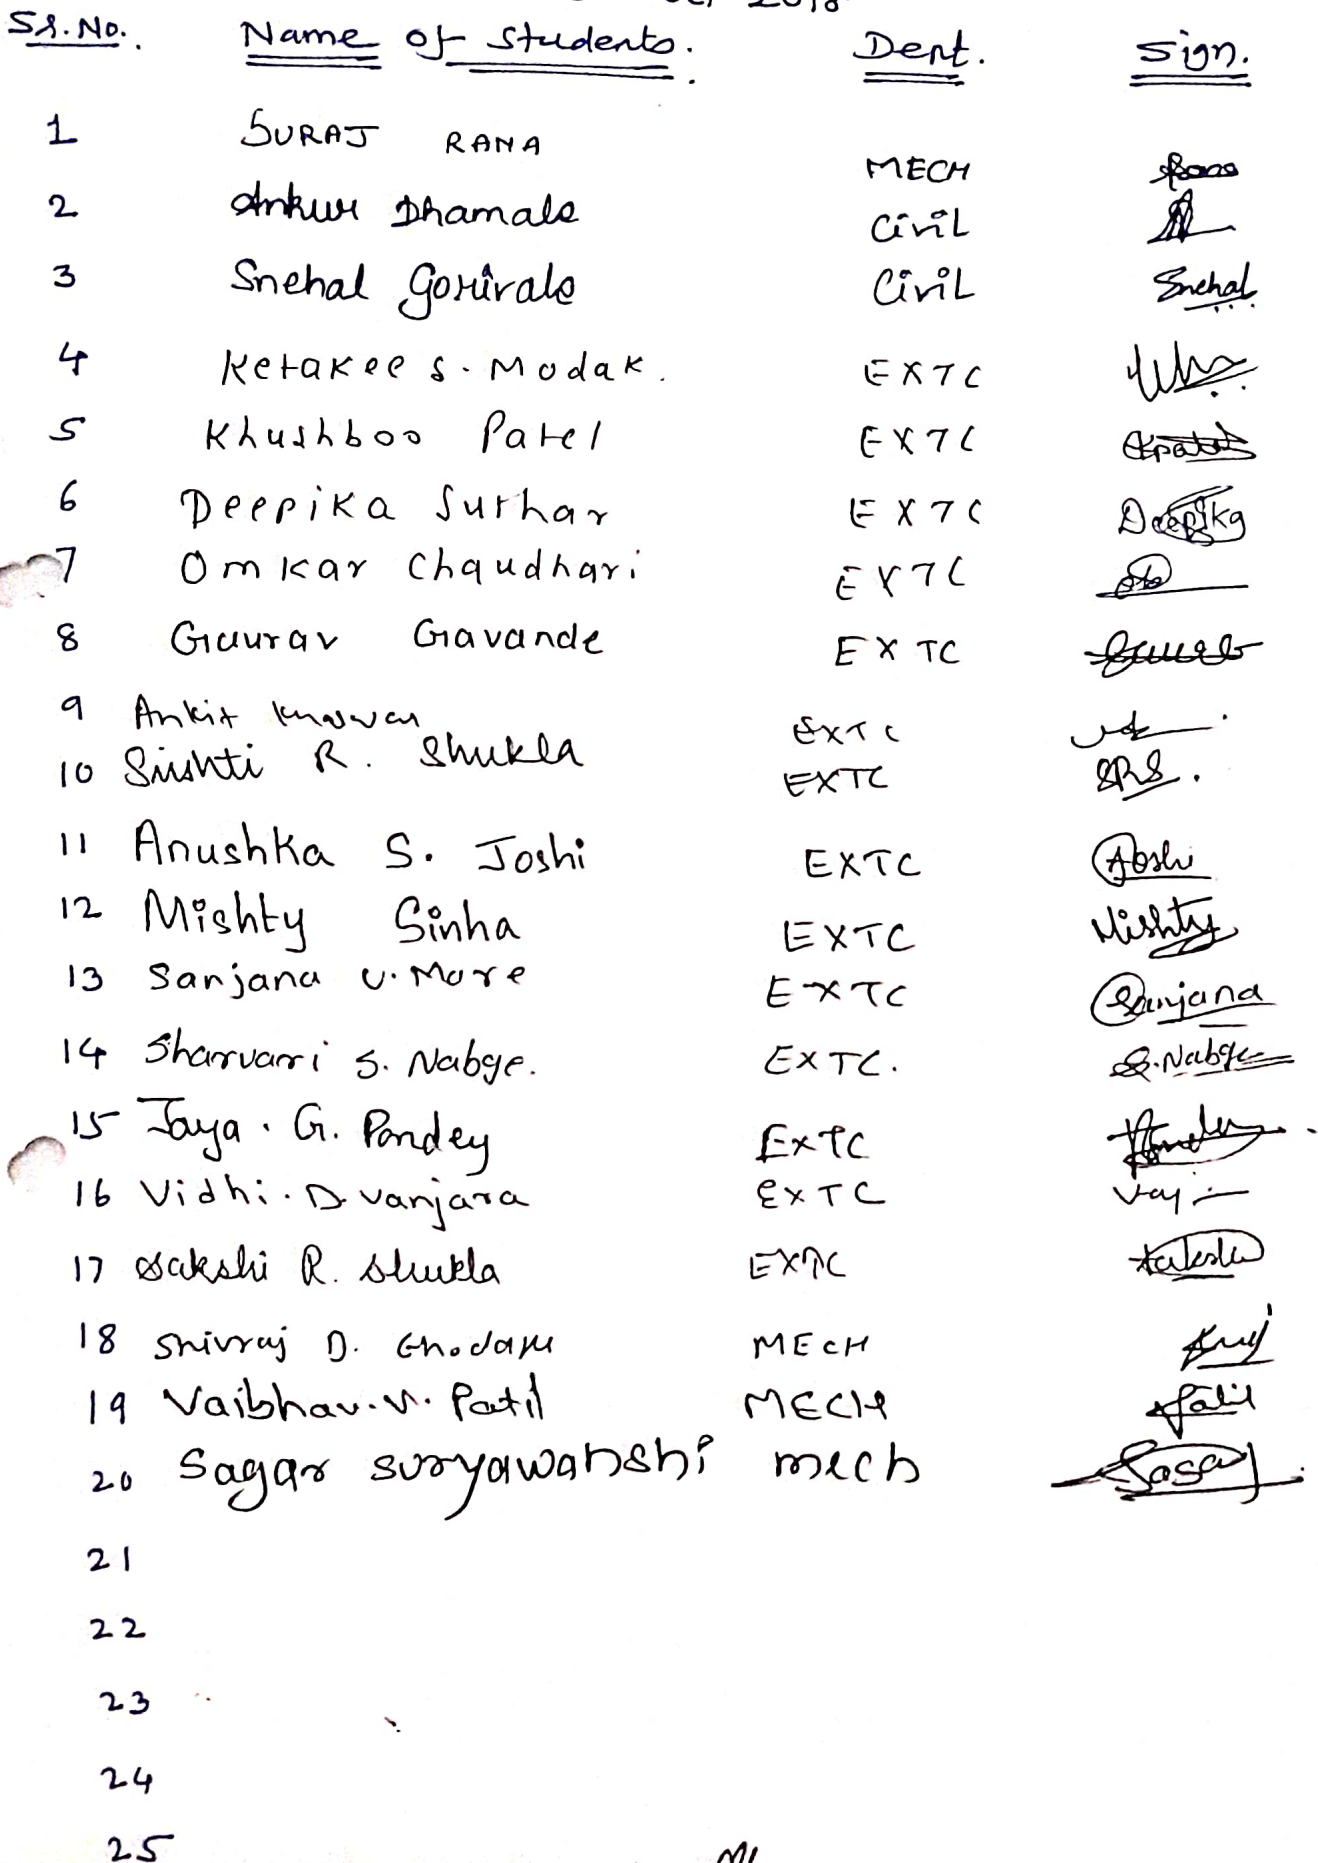 2018
Sr. No. Name of students. Dept. Sign.
1 SURAJ RANA MECH
2 Ankur Dhamale Civil
3 Snehal Gorivale Civil Snehal
4 Ketakee S. Modak. EXTC
5 Khushboo Patel EXTC
6 Deepika Suthar EXTC Deepika
7 Omkar Chaudhari EXTC
8 Gaurav Gavande EXTC
9 Ankit EXTC
10 Srishti R. Shukla EXTC SRS.
11 Anushka S. Joshi EXTC Joshi
12 Mishty Sinha EXTC Mishty
13 Sanjana V. More EXTC Sanjana
14 Sharvari S. Nabge. EXTC. S. Nabge
15 Jaya. G. Pandey EXTC
16 Vidhi. D. Vanjara EXTC
17 Sakshi R. Shukla EXTC
18 Shivraj D. MECH
19 Vaibhav. V. Patil MECH Patil
20 Sagar suryawanshi mech Sagar
21
22
23
24
25